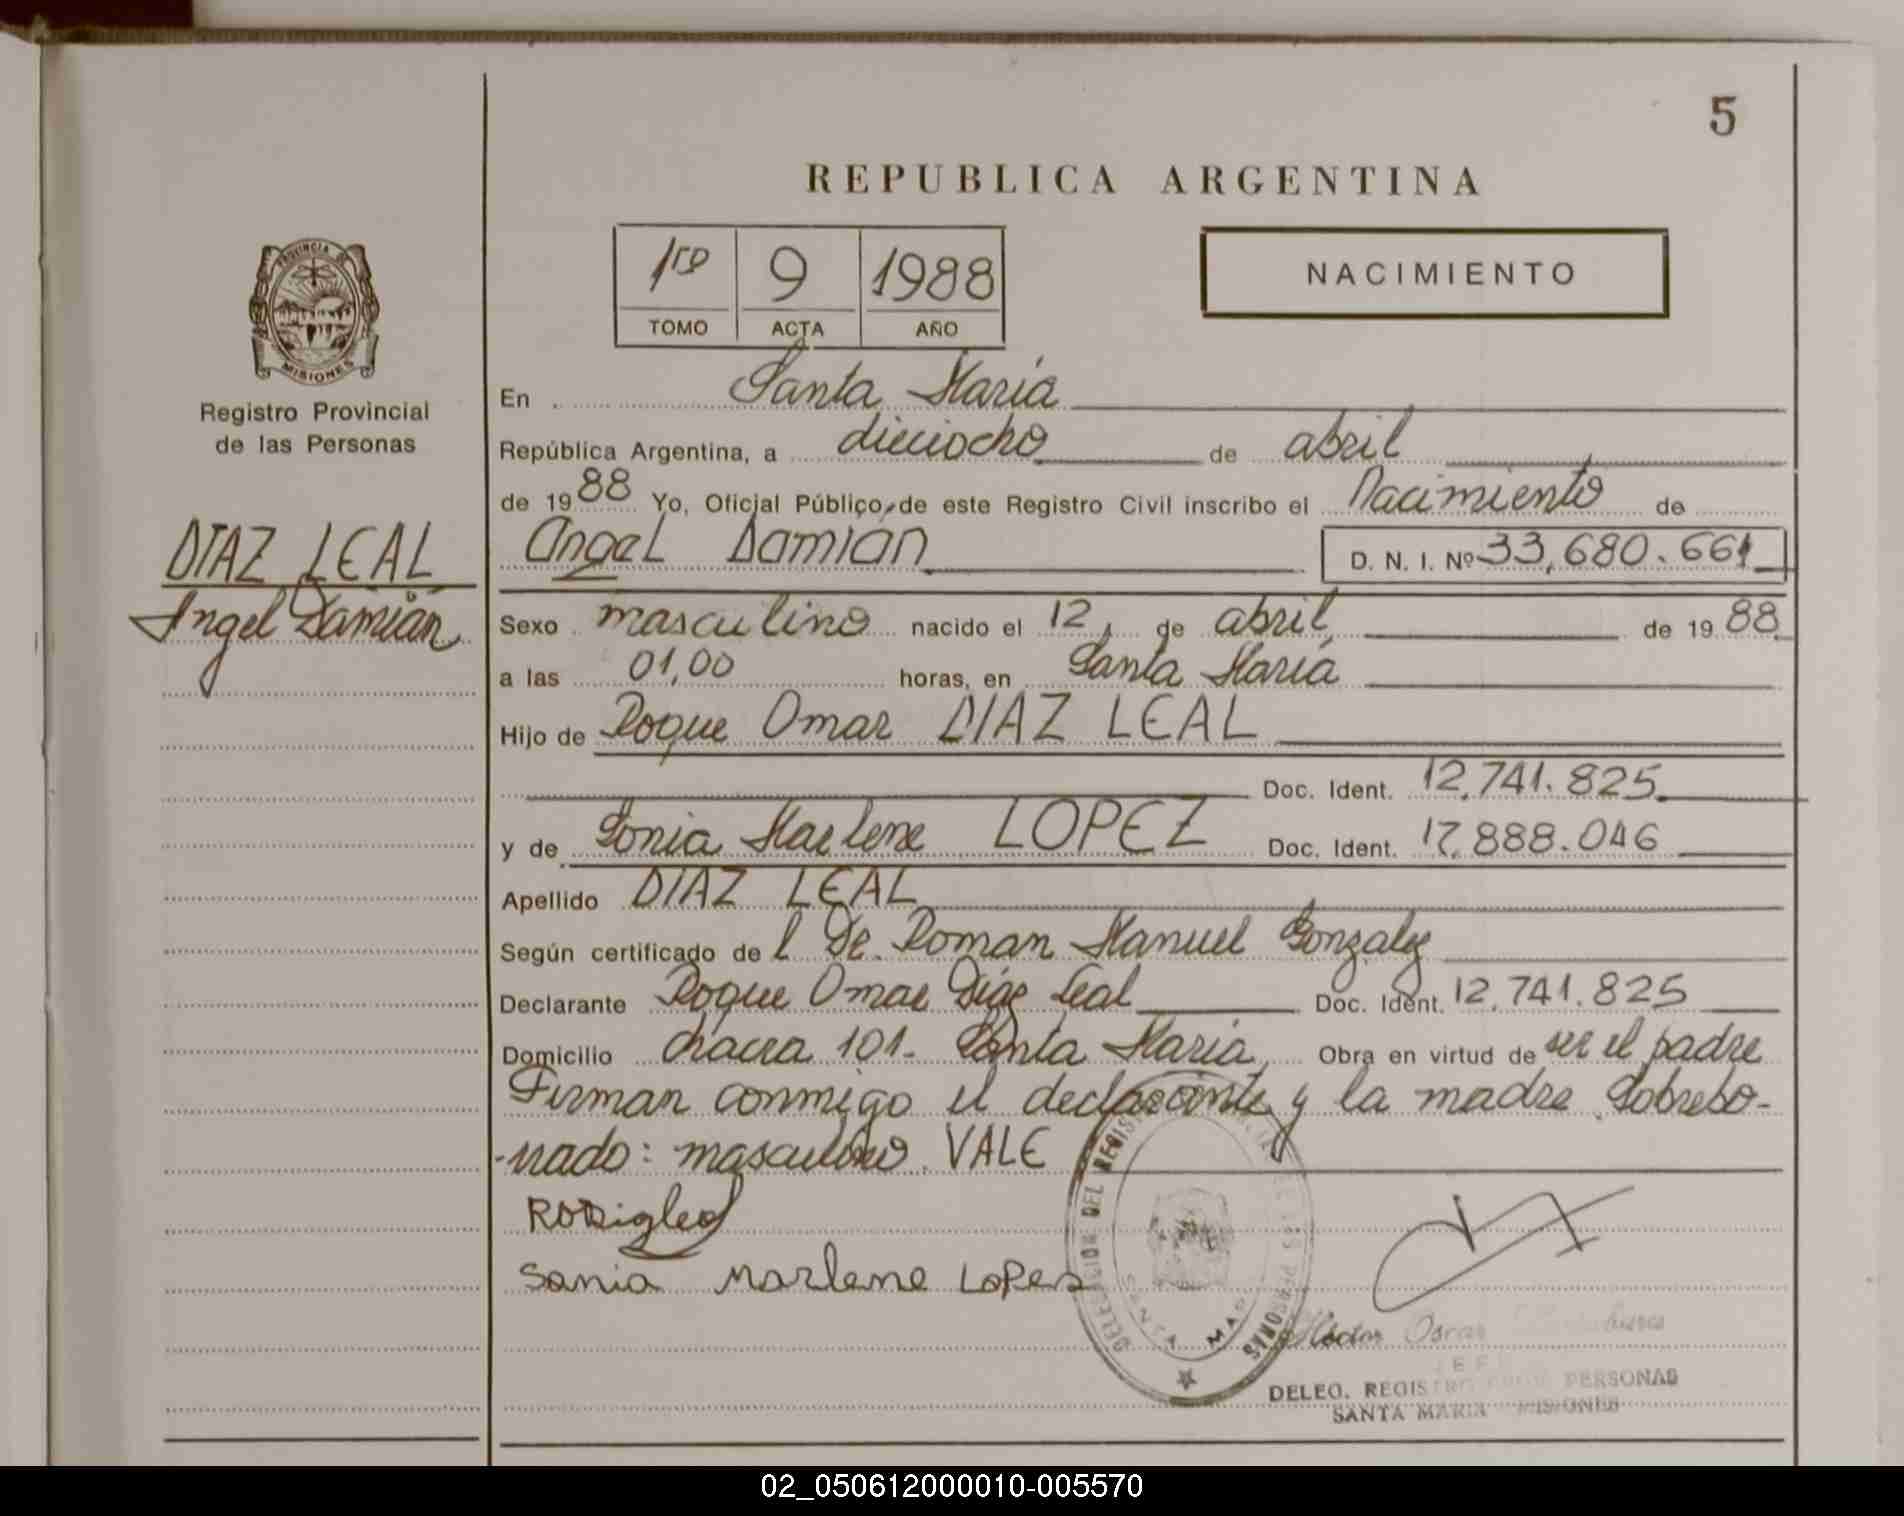 5
REPUBLICA ARGENTINA
1ro 9 1988
TOMO ACTA AÑO
NACIMIENTO
PROVINCIA DE
MISIONES
Registro Provincial
de las Personas
DIAZ LEAL
Angel Damián
En Santa María
República Argentina, a dieciocho de abril
de 1988 Yo, Oficial Público, de este Registro Civil inscribo el Nacimiento de
Angel Damián D. N. I. Nº 33,680.661
Sexo masculino nacido el 12 de abril de 1988
a las 01,00 horas, en Santa María
Hijo de Roque Omar DIAZ LEAL
Doc. Ident. 12.741.825
y de Sonia Marlene LOPEZ Doc. Ident. 17.888.046
Apellido DIAZ LEAL
Según certificado de l Dr. Roman Manuel Gonzalez
Declarante Roque Omar Díaz Leal Doc. Ident. 12.741.825
Domicilio chacra 101- Santa María Obra en virtud de ser el padre
Firman conmigo el declarante y la madre. Sobrebo-
-rrado: masculino. VALE
Sonia Marlene Lopes
DELEGACION DEL REGISTRO PERSONAS
SANTA MARIA
Héctor Oscar
JEFE
DELEG. REGISTRO PERSONAS
SANTA MARIA MISIONES
02_050612000010-005570